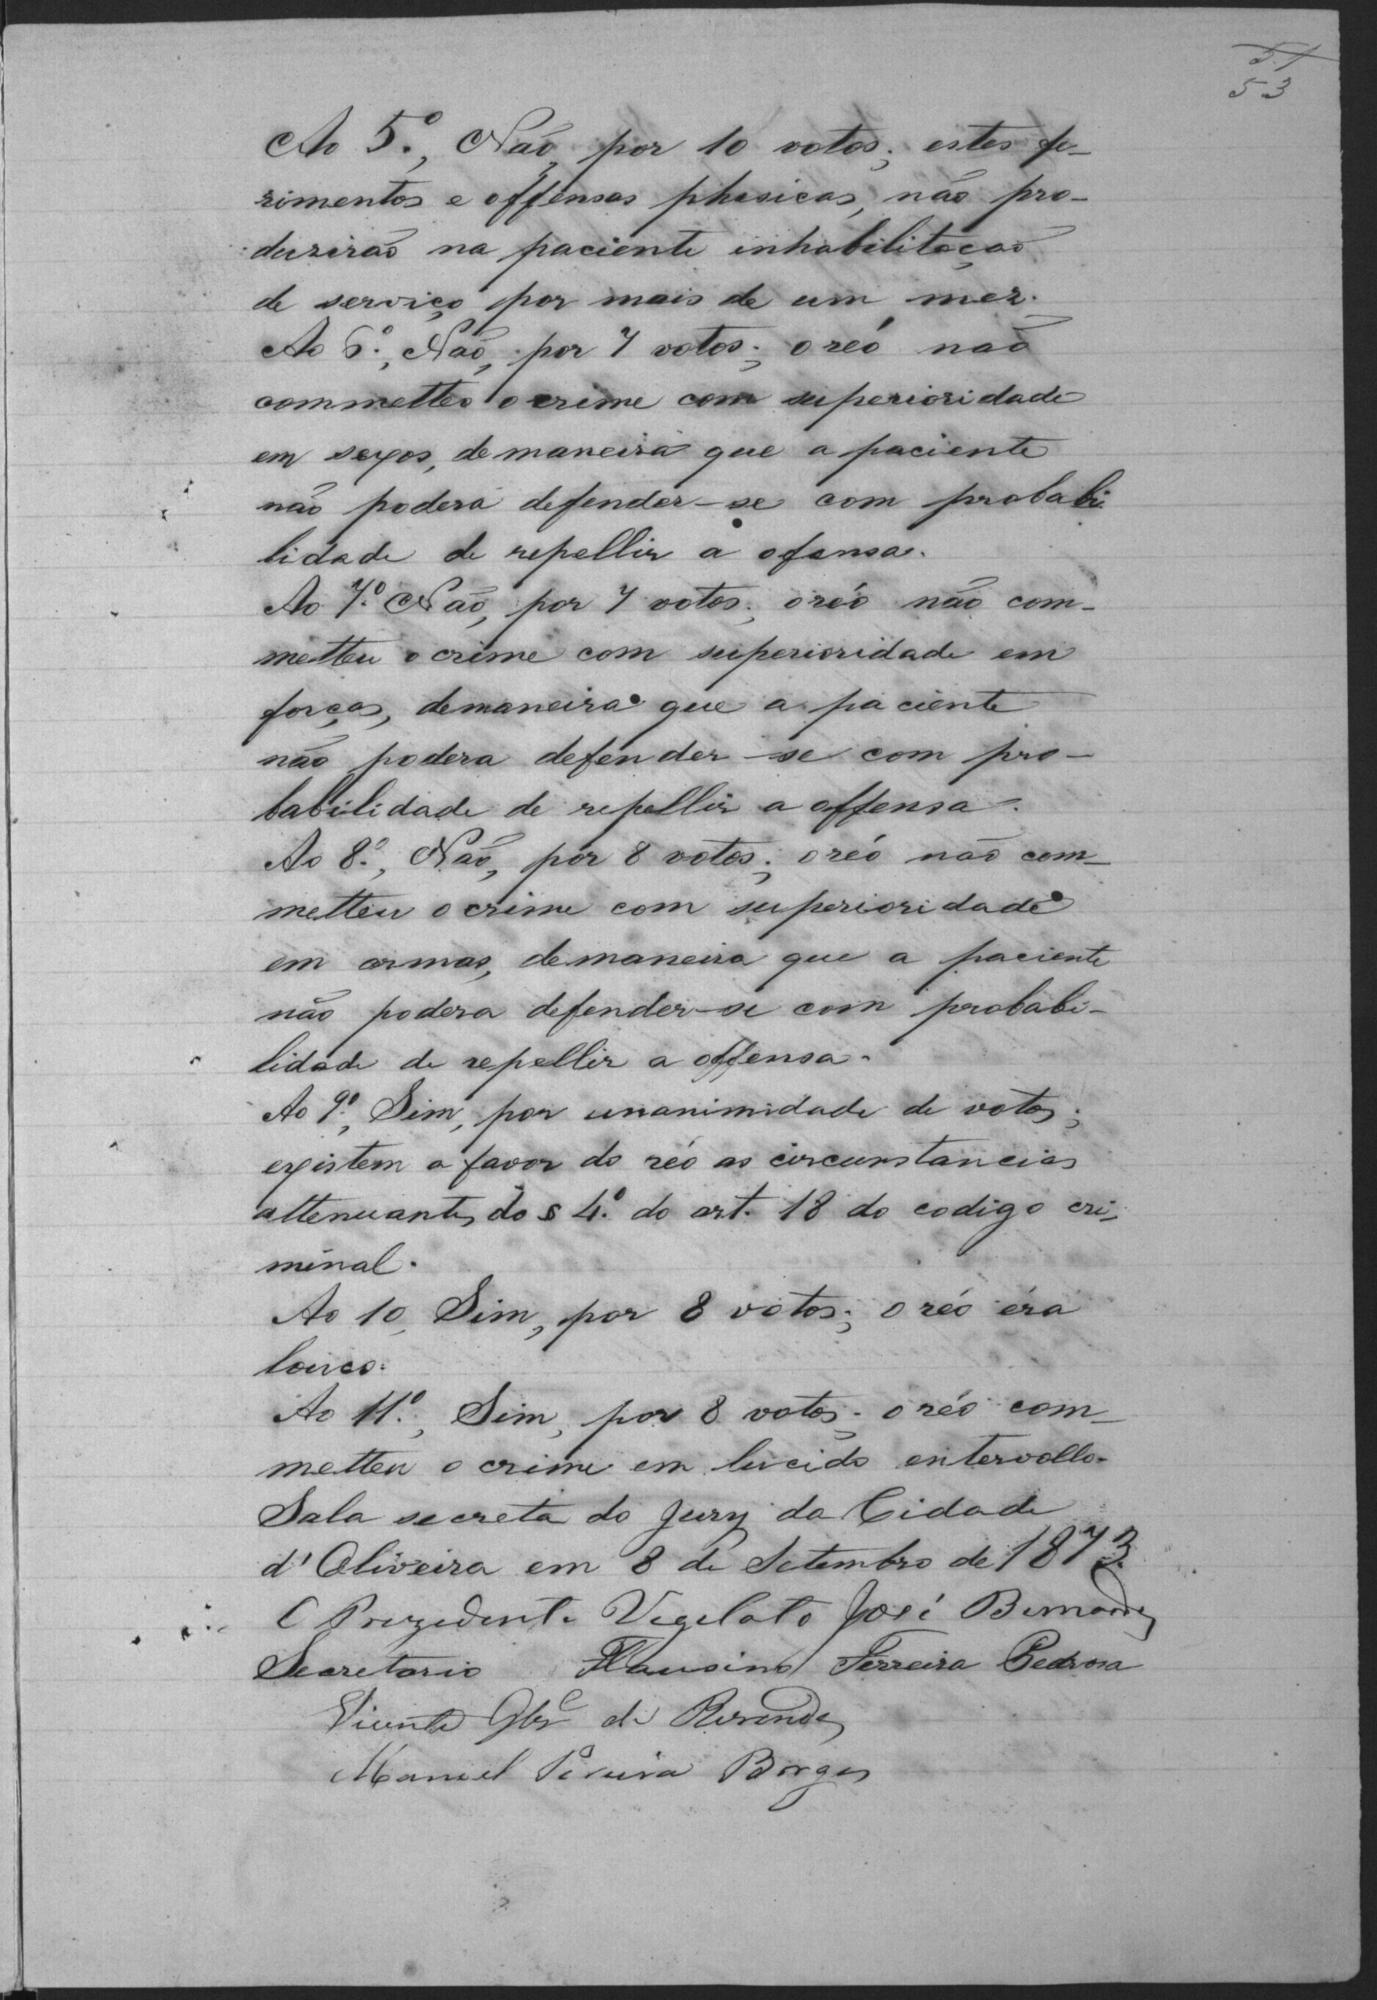 51
53
Ao 5.º, Não, por 10 votos; estes fe-
rimentos e offensas phisicas, não pro-
duzirão na paciente inhabilitação
de serviço por mais de um mez.
Ao 6.º, Não, por 7 votos; o reó não
commetteo o crime com superioridade
em sexos, de maneira que a paciente
não podera defender-se com probabi
lidade de repellir a ofensa.
Ao 7.º Não, por 7 votos; o reó não com-
metteu o crime com superioridade em
forças, de maneira que a paciente
não podera defender-se com pro-
babilidade de repellir a offensa.
Ao 8.º, Não, por 8 votos; o reó não com-
metteu o crime com superioridade
em armas, de maneira que a paciente
não podera defender-se com probabi-
lidade de repellir a offensa.
Ao 9.º, Sim, por unanimidade de votos;
existem a favor do reó as circunstancias
attenuantes do § 4.º do art. 18 do codigo cri-
minal.
Ao 10, Sim, por 8 votos; o réo éra
louco.
Ao 11.º, Sim, por 8 votos; o réo com-
metteu o crime em lucido entervallo.
Sala secreta do Jury da Cidade
d'Oliveira em 8 de Setembro de 1873.
O Prezidente Vegelato José Bernardes
Secretario Flausino Ferreira Pedrosa
Vicente Glz de Rezende
Manoel Pereira Borges